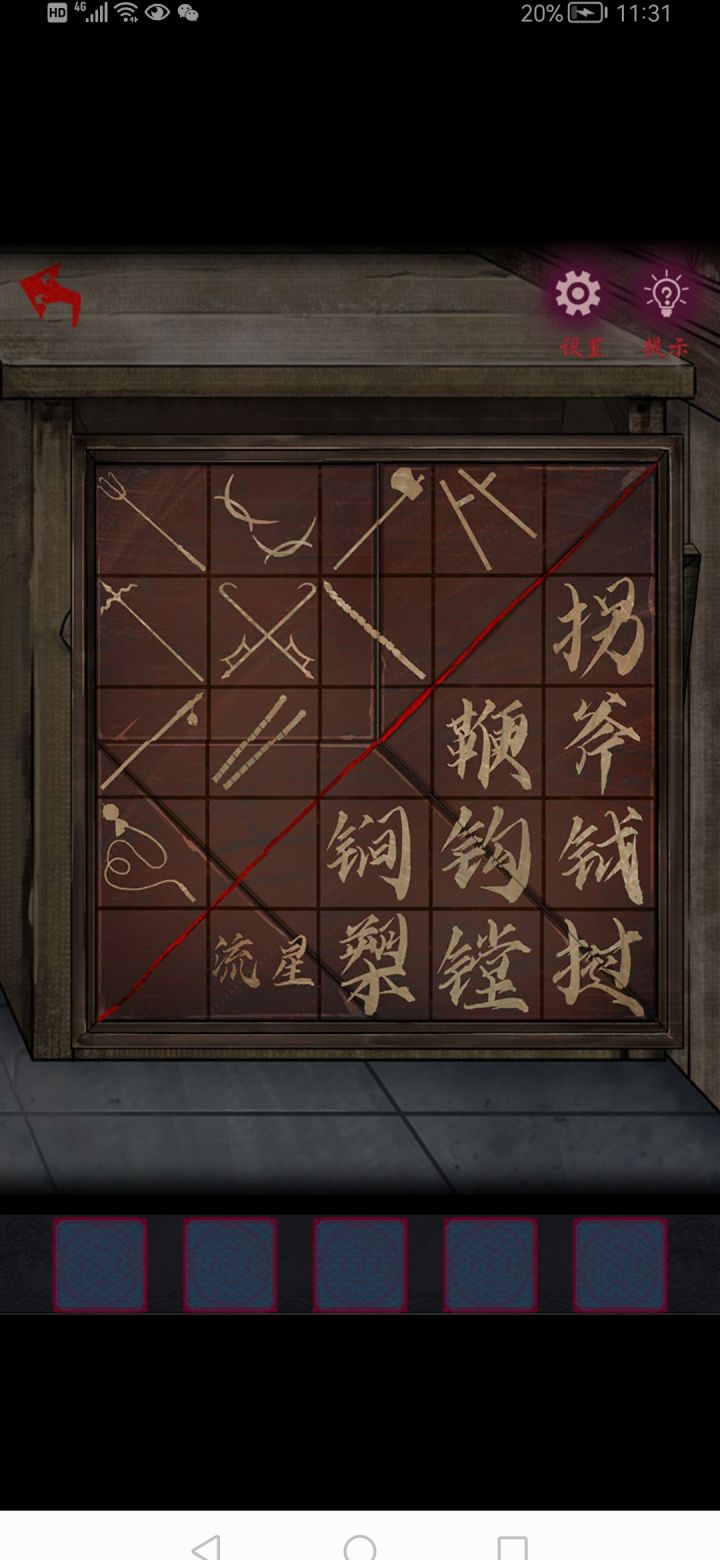 HD 4G 20% 11:31
设置 提示
拐
鞭 斧
锏 钩 钺
流星 槊 镋 挝